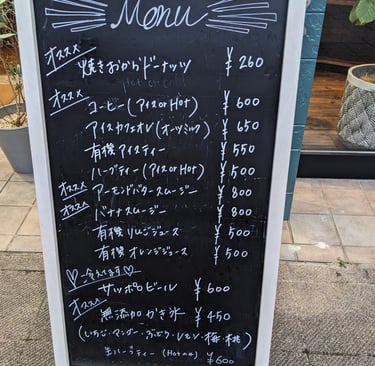 Menu
オススメ 焼きおからドーナッツ ¥260
オススメ コーヒー(アイス or Hot) ¥600
アイスカフェオレ(オーツミルク) ¥650
有機アイスティー ¥550
ハーブティー(アイス or Hot) ¥500
オススメ アーモンドバタースムージー ¥800
オススメ バナナスムージー ¥800
有機りんごジュース ¥500
有機オレンジジュース ¥500
冷えてます
サッポロビール ¥600
オススメ 無添加かき氷 ¥450
(いちご・マンゴー・ぶどう・レモン・梅・桃)
生ハーブティー(Hotのみ) ¥600